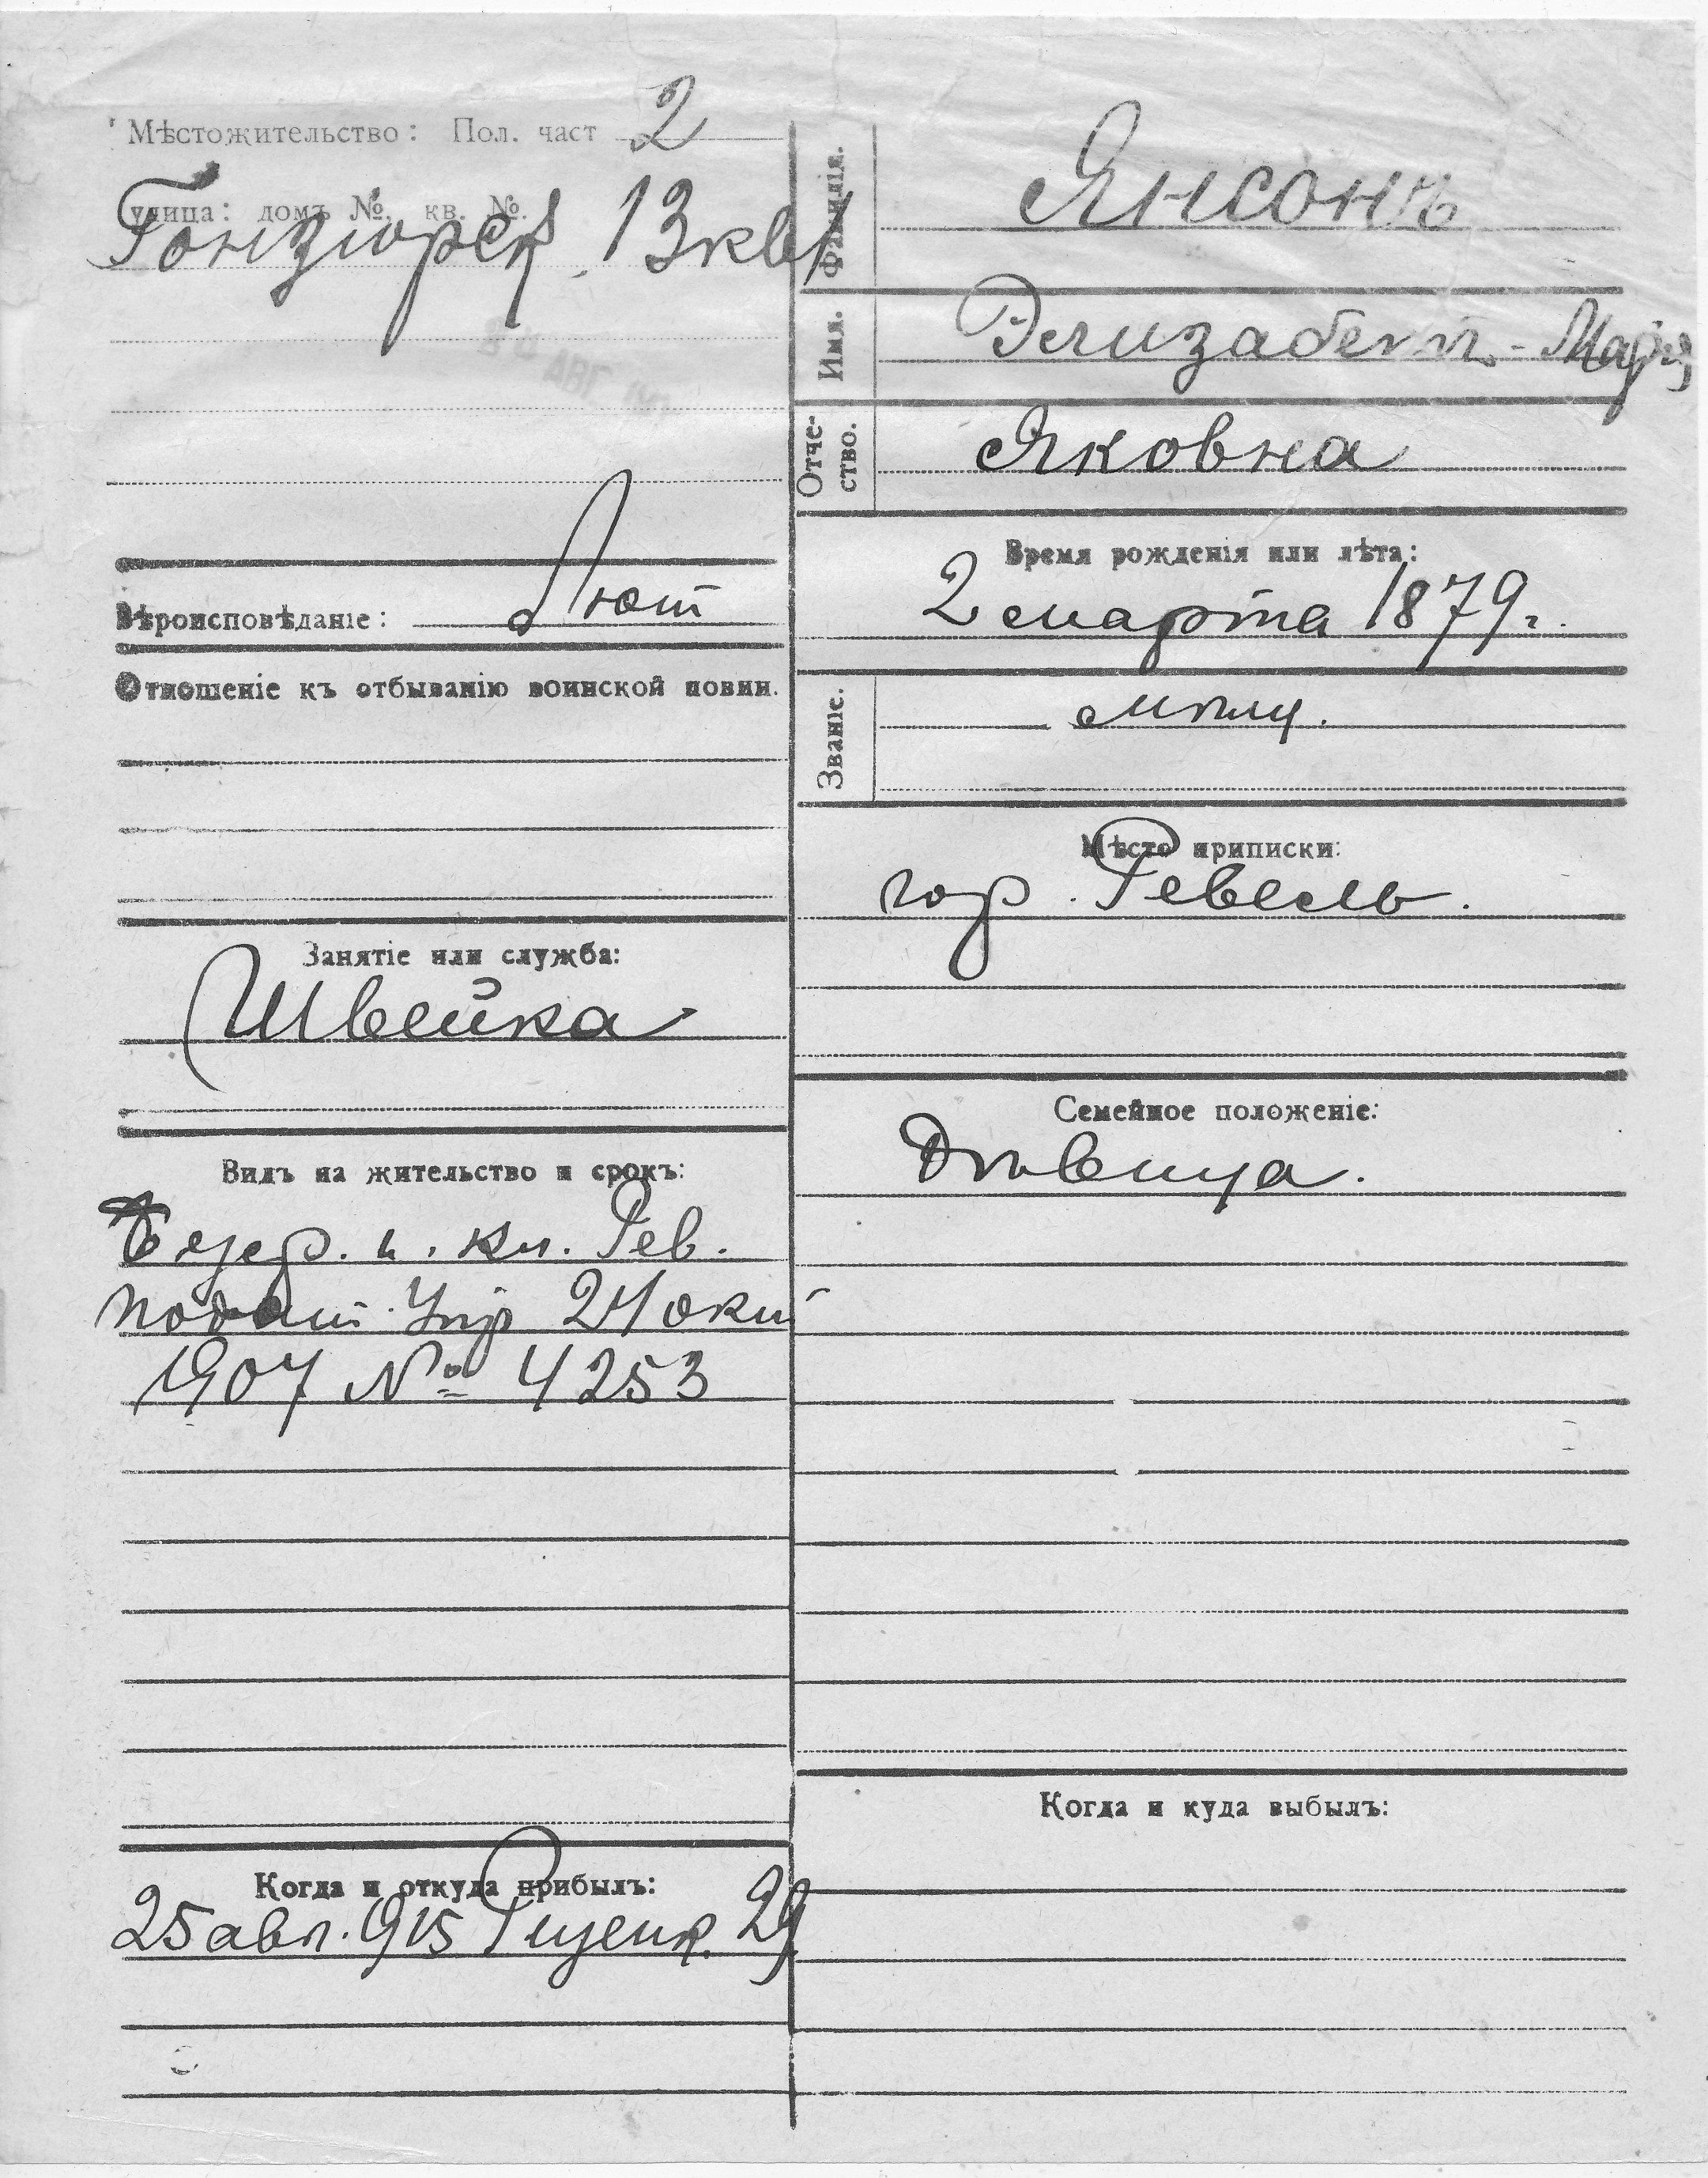 Мѣстожительство: Пол. част 2
улица: домъ №. кв. №.
Гонзіорск. 13 кв 1
АВГ
Вѣроисповѣданіе: Лют
Отношеніе къ отбыванію воинской повин.
Занятіе или служба:
Швейка
Видъ на жительство и срокъ:
Безср. п. кн. Рев.
подат. Упр 24 окт
1907 № 4253
Когда и откуда прибылъ:
25 авг. 915 Риценк. 29
Фамилія.
Янсонъ
Имя.
Элизабет - Марія
Отче-
ство.
Яковна
Время рожденія или лѣта:
2 марта 1879 г.
Званіе.
мѣщ.
Мѣсто приписки:
гор. Ревель.
Семейное положеніе:
Дѣвица.
Когда и куда выбылъ: